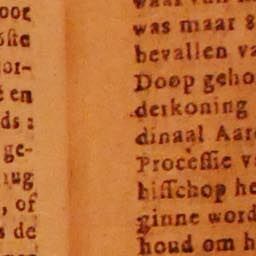 oor
ofte
or-
e en
ds :
ge-
nug
, of
s de
waar van
was maar 8
bevallen va
Doop geho
derkoning
dinaal Aar
Procèſſie v
biſſchop he
ginne word
houd om h